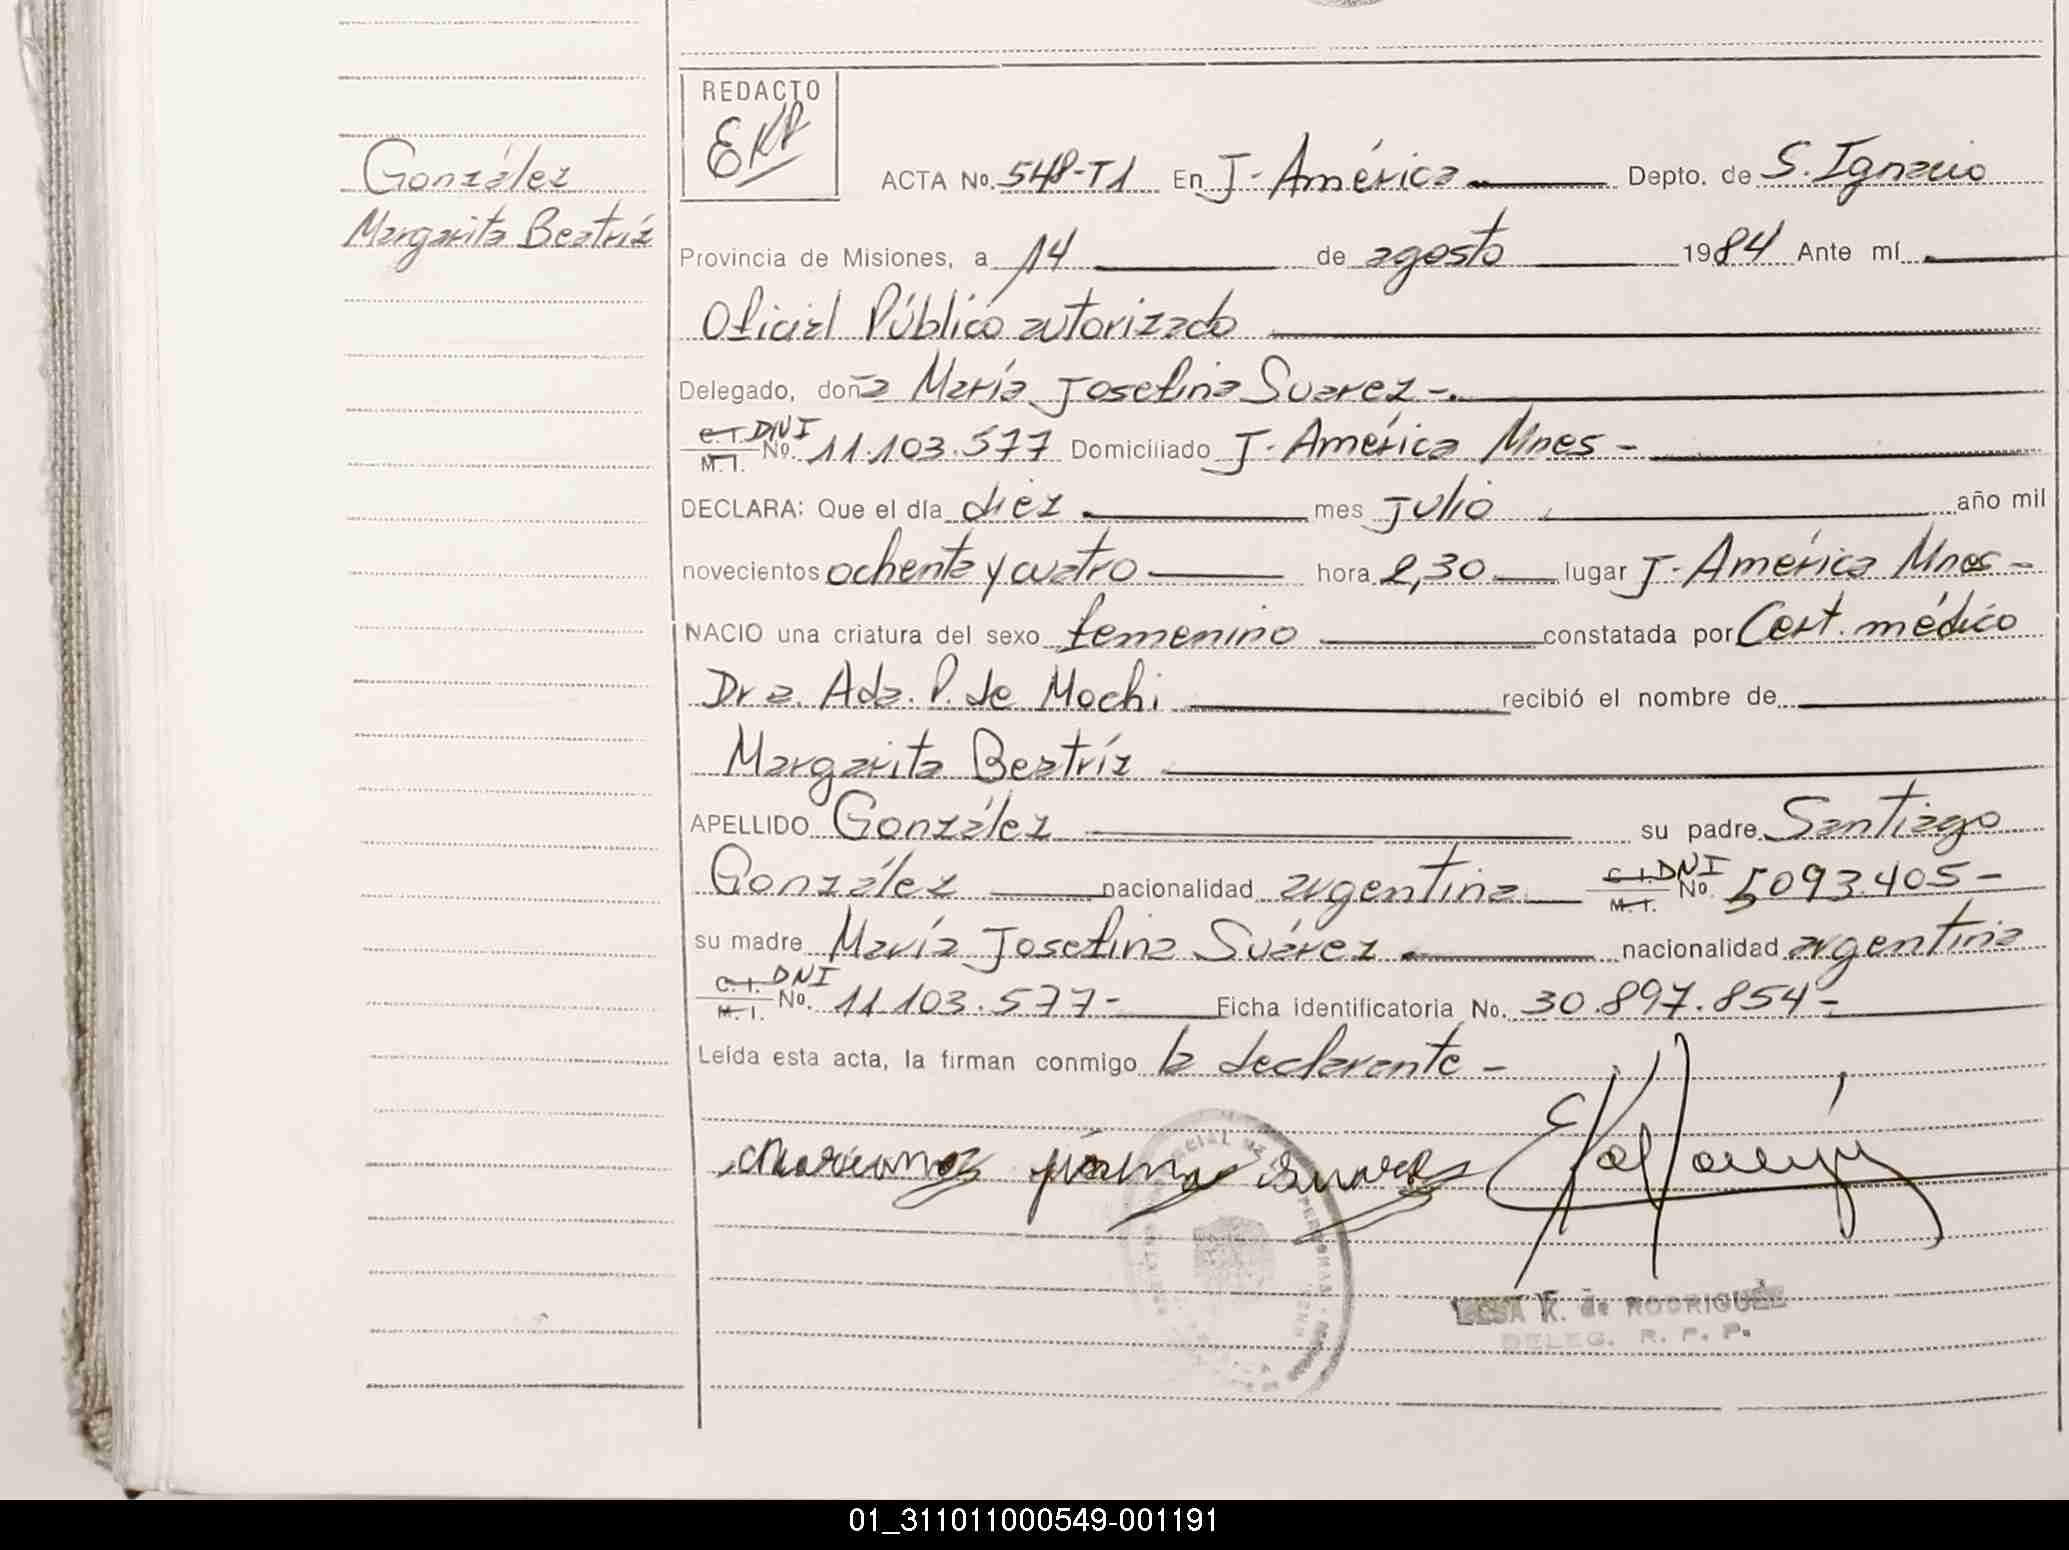 REDACTO
EKR
González
Margarita Beatríz
ACTA No. 548-T1 En J. América Depto. de S. Ignacio
Provincia de Misiones, a 14 de agosto 1984 Ante mí
Oficial Público autorizado
Delegado, doña María Josefina Suarez -
C.I. DNI
M.I. No. 11.103.577 Domiciliado J. América Mnes -
DECLARA: Que el día diez mes julio año mil
novecientos ochenta y cuatro hora 2,30 lugar J. América Mnes -
NACIO una criatura del sexo femenino constatada por Cert. médico
Dra. Ada. P. de Mochi recibió el nombre de
Margarita Beatríz
APELLIDO González su padre Santiago
González nacionalidad argentina C.I. DNI M.I. No. 5093.405 -
su madre María Josefina Suárez nacionalidad argentina
C.I. DNI
M.I. No. 11.103.577 - Ficha identificatoria No. 30.897.854 -
Leída esta acta, la firman conmigo la declarante -
K. de RODRIGUEZ
DELEG. R. P. P.
01_311011000549-001191